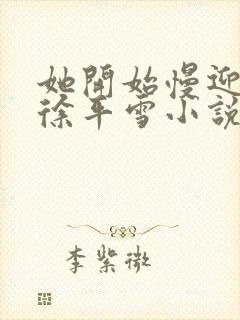 她開始慢迎
徐年雪小說
李紫微